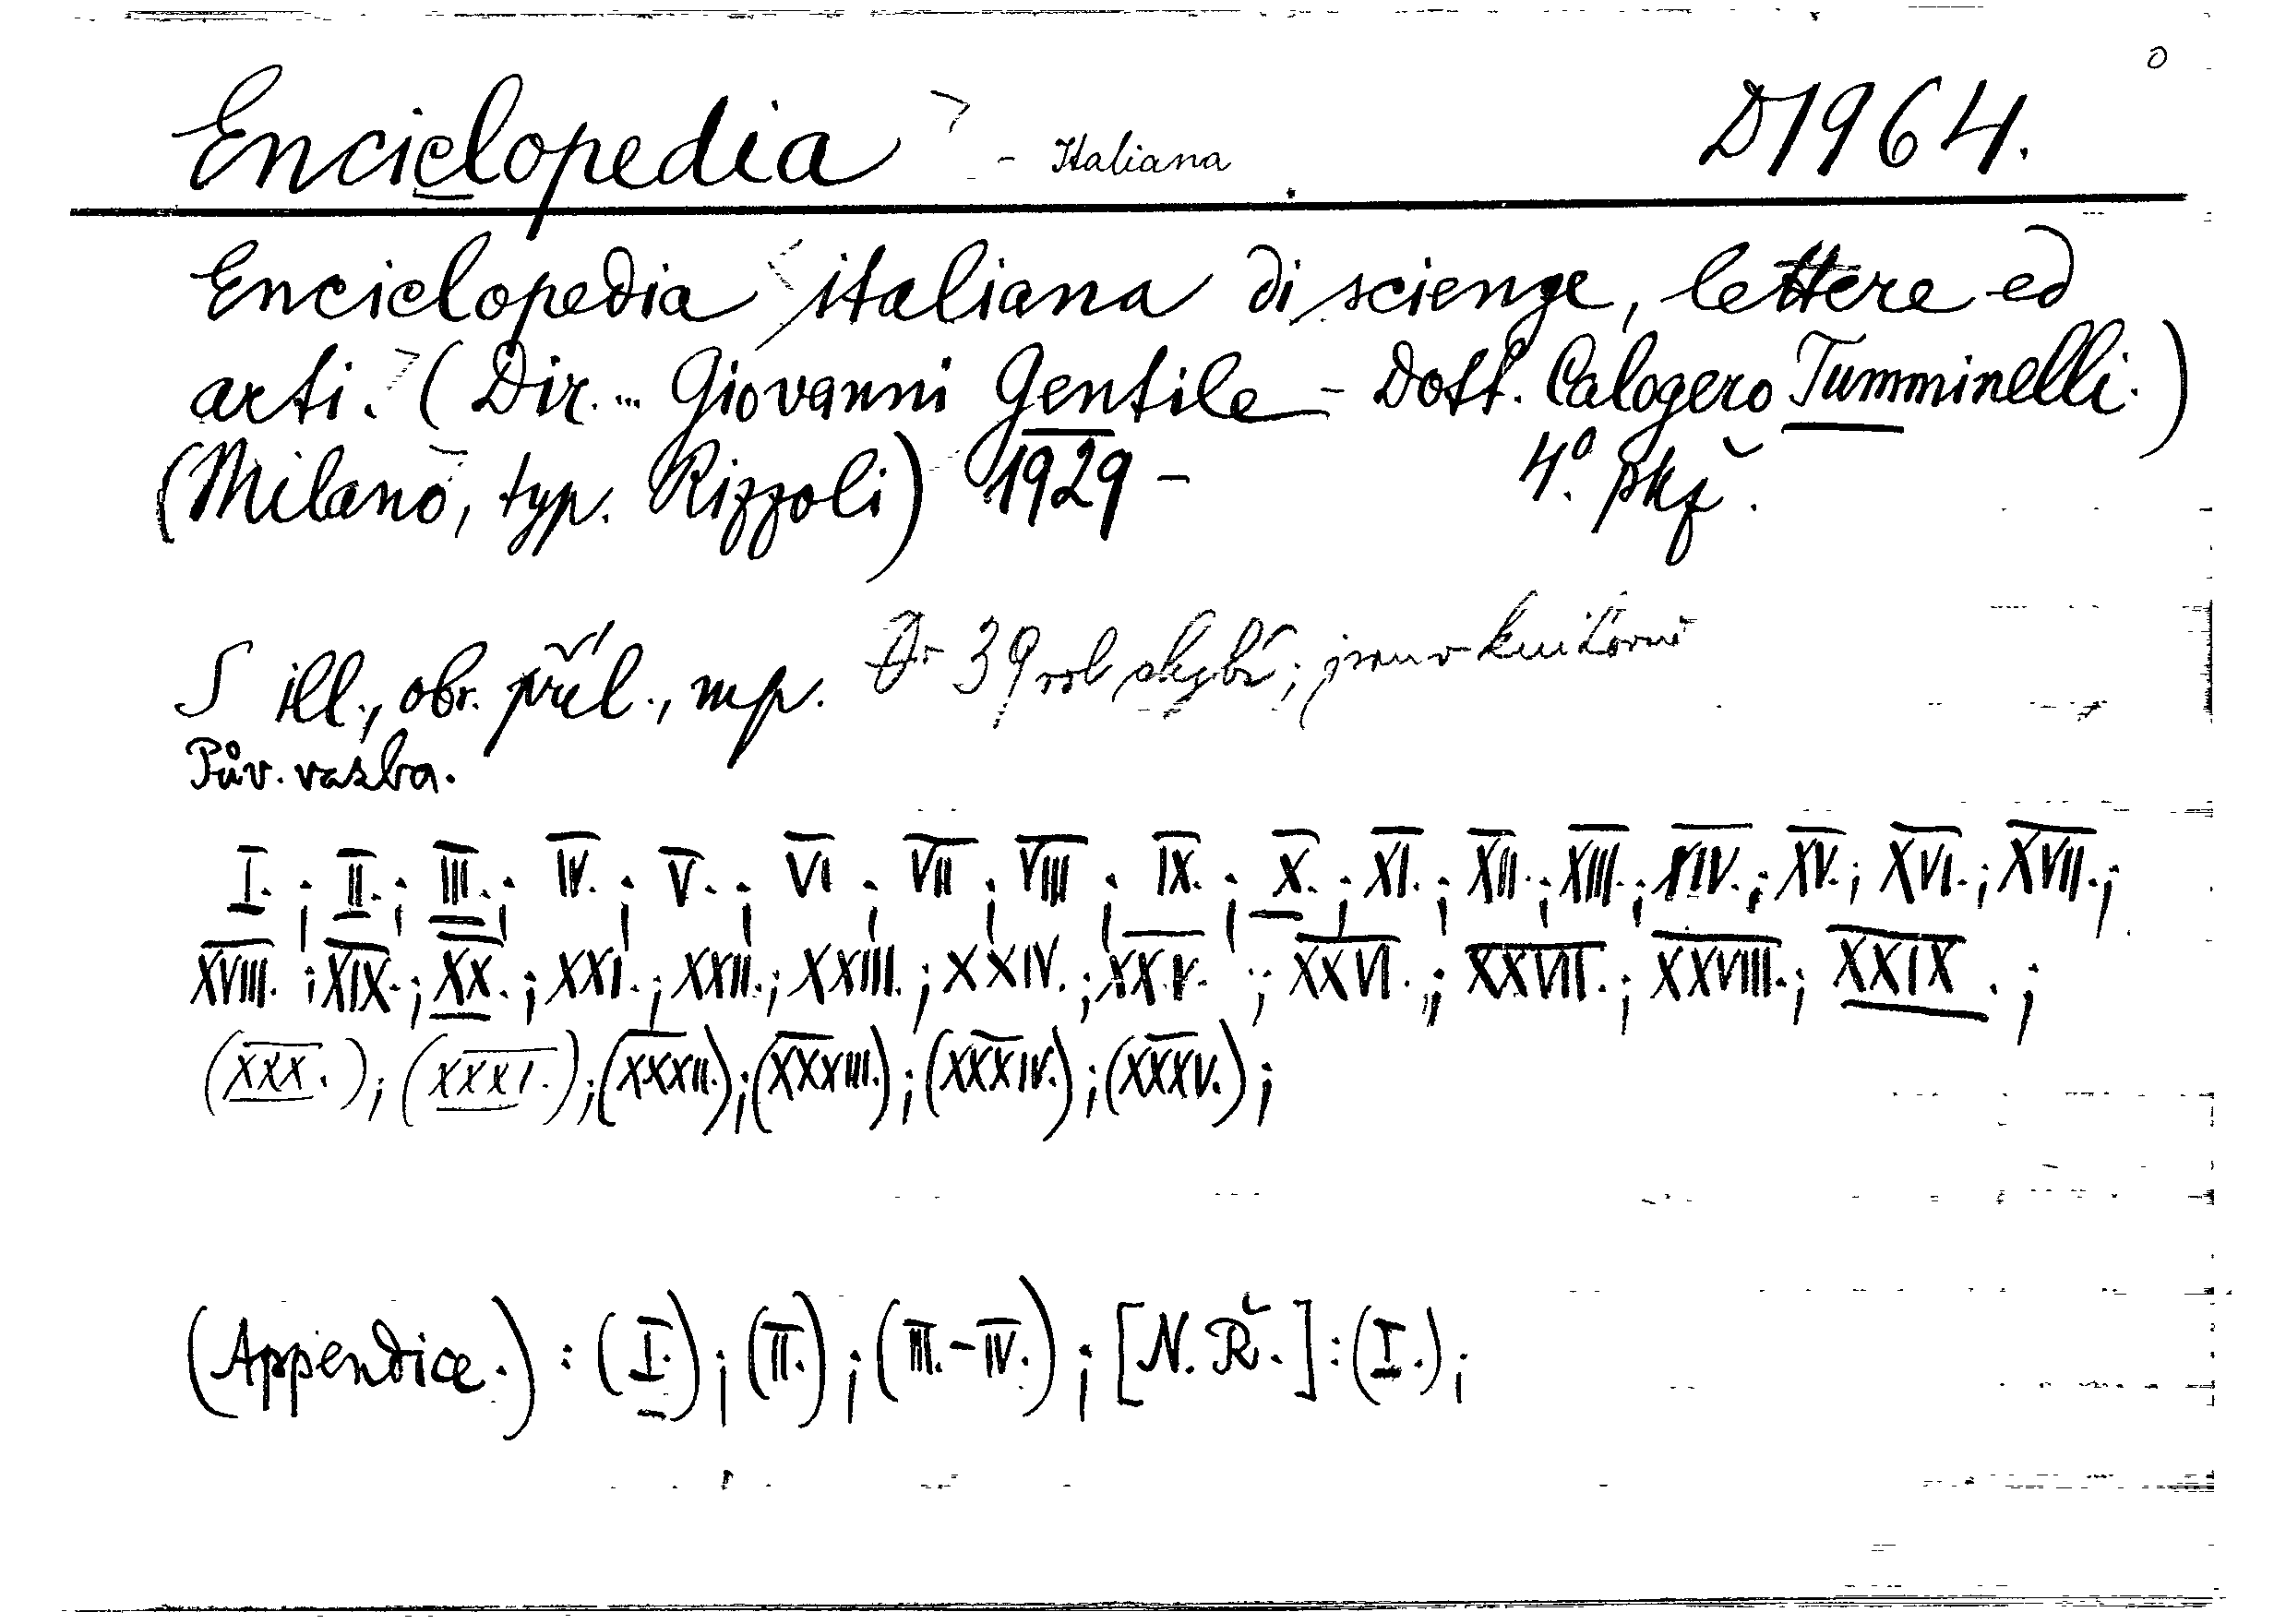 Enciclopedia - Italiana D1964.
Enciclopedia italiana di scienze, lettere ed
arti. (Dir. ... Giovanni Gentile - Dott. Calogero Tumminelli.)
(Milano, typ. Rizzoli) 1929 - 4°. pkž.
S ill., obr. příl., mp. 39 rol chybí; jsou v
Pův. vazba.
I.; II.; III.; IV.; V.; VI.; VII.; VIII.; IX.; X.; XI.; XII.; XIII.; XIV.; XV.; XVI.; XVII.;
XVIII.; XIX.; XX.; XXI.; XXII.; XXIII.; XXIV.; XXV.; XXVI.; XXVII.; XXVIII.; XXIX.;
(XXX.); (XXXI.); (XXXII.); (XXXIII.); (XXXIV.); (XXXV.);
(Appendice.): (I.); (II.); (III.-IV.); [N. Ř.]: (I.);